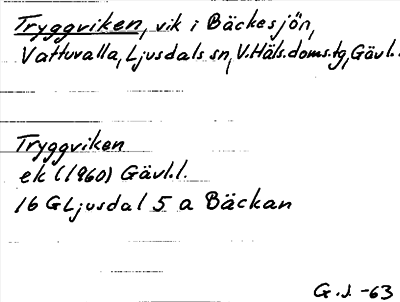 Tryggviken, vik i Bäckesjön,
Vattuvalla, Ljusdals sn, V. Häls. doms. tg, Gävl. l.
Tryggviken
ek (1960) Gävl. l.
16 G Ljusdal 5 a Bäckan
G. J. -63